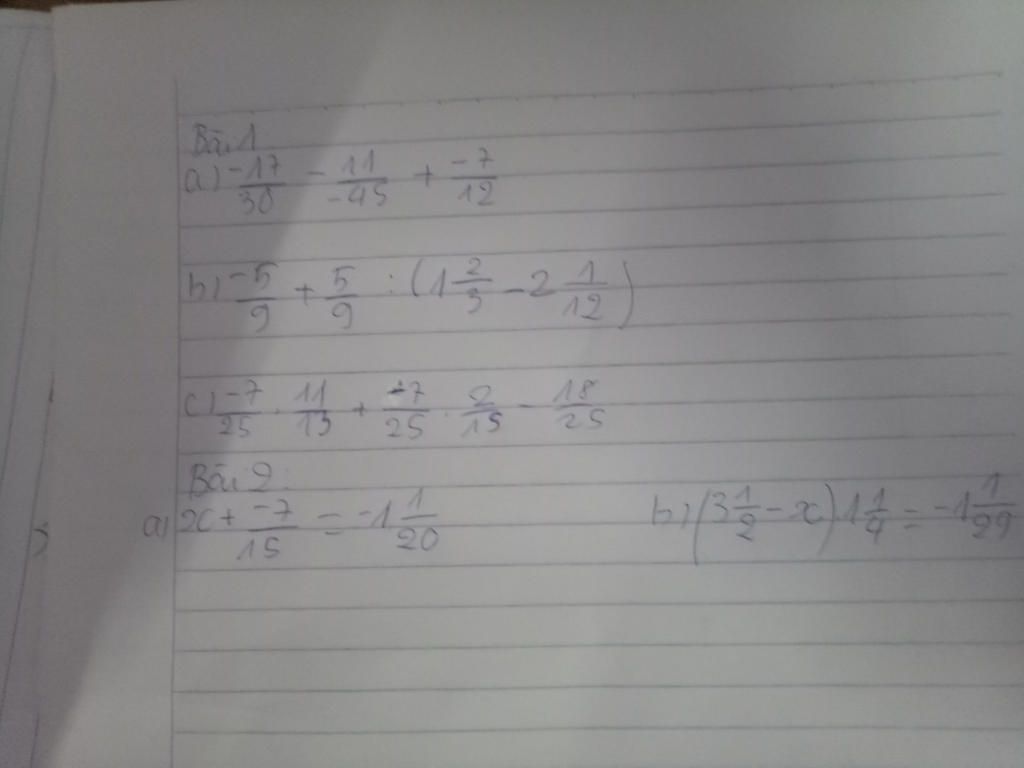 Bài 1
a) -17/30 - 11/-45 + -7/12
b) -5/9 + 5/9 : (1 2/3 - 2 1/12)
c) -7/25 . 11/13 + -7/25 . 2/13 - 18/25
Bài 2:
a) x + -7/15 = -1 1/20 b) (3 1/2 - x) 1 1/4 = -1 1/